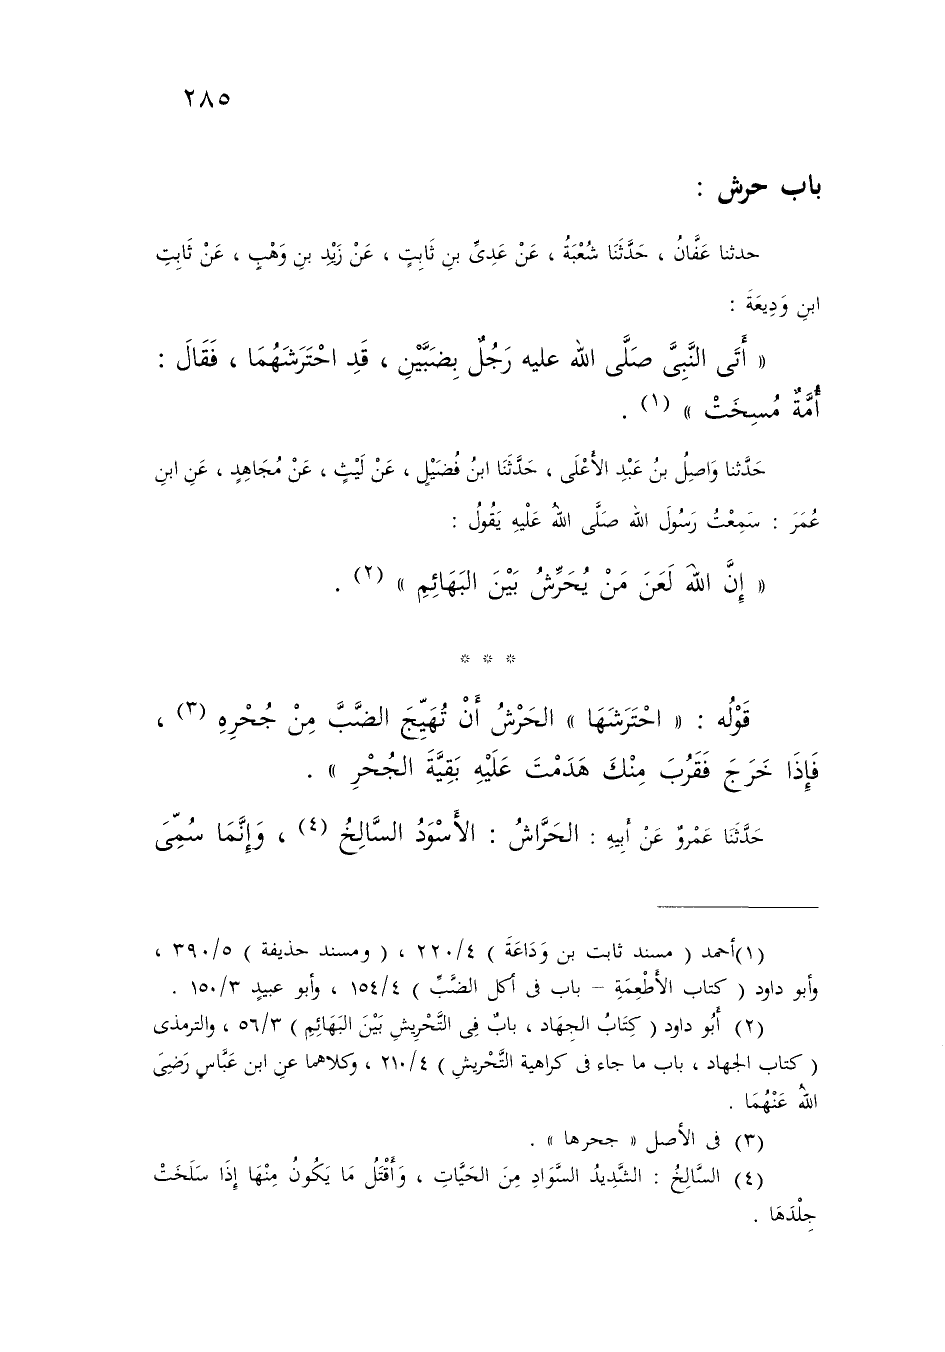 ٢٨٥
باب حرش :
حدثنا عَفَّانُ ، حَدَّثَنَا شُعْبَةُ ، عَنْ عَدِىِّ بنِ ثَابِتٍ ، عَنْ زَيْدِ بنِ وَهْبٍ ، عَنْ ثَابِتِ
ابنِ وَدِيعَةَ :
« أَتَى النَّبِىَّ صَلَّى اللهُ عليه رَجُلٌ بِضَبَّيْنِ ، قَدِ احْتَرَشَهُمَا ، فَقَالَ :
أُمَّةٌ مُسِخَتْ » (١) .
حَدَّثنا وَاصِلُ بنُ عَبْدِ الأَعْلَى ، حَدَّثَنَا ابنُ فُضَيْلٍ ، عَنْ لَيْثٍ ، عَنْ مُجَاهِدٍ ، عَنِ ابنِ
عُمَرَ : سَمِعْتُ رَسُولَ اللهِ صَلَّى اللهُ عَلَيْهِ يَقُولُ :
« إِنَّ اللهَ لَعَنَ مَنْ يُحَرِّشُ بَيْنَ البَهَائِمِ » (٢) .
* * *
قَوْلُه : « احْتَرَشَهَا » الحَرْشُ أَنْ تُهَيِّجَ الضَّبَّ مِنْ جُحْرِهِ (٣) ،
فَإِذَا خَرَجَ فَقَرُبَ مِنْكَ هَدَمْتَ عَلَيْهِ بَقِيَّةَ الجُحْرِ » .
حَدَّثَنَا عَمْرٌو عَنْ أَبِيهِ : الحَرَّاشُ : الأَسْوَدُ السَّالِخُ (٤) ، وَإِنَّمَا سُمِّىَ
(١)أحمد ( مسند ثابت بن وَدَاعَةَ ) ٢٢٠/٤ ، ( ومسند حذيفة ) ٣٩٠/٥ ،
وأبو داود ( كتاب الأَطْعِمَةِ – باب فى أكل الضَّبِّ ) ١٥٤/٤ ، وأبو عبيدٍ ١٥٠/٣ .
(٢) أَبُو داود ( كِتَابُ الجِهَادِ ، بابٌ فِى التَّحْرِيشِ بَيْنَ البَهَائِمِ ) ٥٦/٣ ، والترمذى
( كتاب الجهاد ، باب ما جاء فى كراهية التَّحْرِيشِ ) ٢١٠/٤ ، وكلاهما عنِ ابن عَبَّاسٍ رَضِىَ
اللهُ عَنْهُمَا .
(٣) فى الأصل « جحرها » .
(٤) السَّالِخُ : الشَّدِيدُ السَّوَادِ مِنَ الحَيَّاتِ ، وَأَقْتَلُ مَا يَكُونُ مِنْهَا إِذَا سَلَخَتْ
جِلْدَهَا .